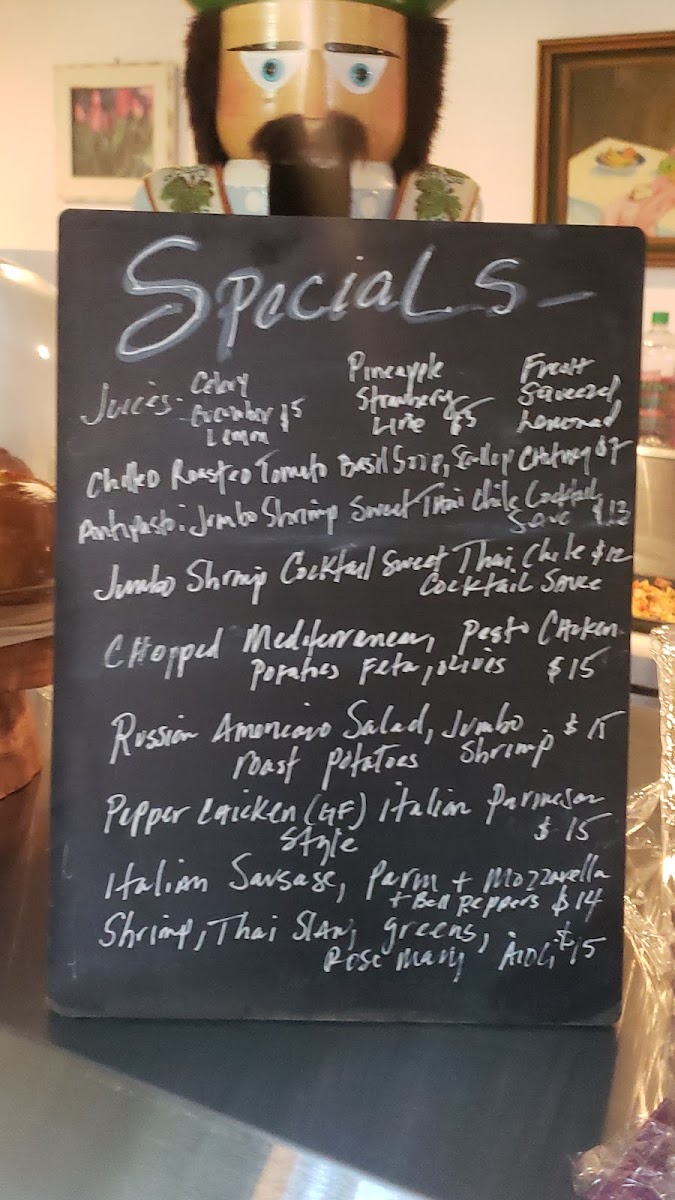 Specials
Juices- Celery Cucumber Lemon $5
Pineapple Strawberry Lime $5
Fresh Squeezed Lemonad
Chilled Roasted Tomato Basil Soup, Scallop Chutney $7
Antipasto: Jumbo Shrimp Sweet Thai Chile Cocktail
$13
Jumbo Shrimp Cocktail Sweet Thai Chile $12
Cocktail Sauce
Chopped Mediterranean, Pesto Chicken
Potatoes Feta, olives $15
Russian Americano Salad, Jumbo $15
roast potatoes Shrimp
Pepper Chicken (GF) Italian Parmesan
Style $15
Italian Sausage, Parm + Mozzarella
+ Bell Peppers $14
Shrimp, Thai Slaw, greens,
Rose mary Aioli $15